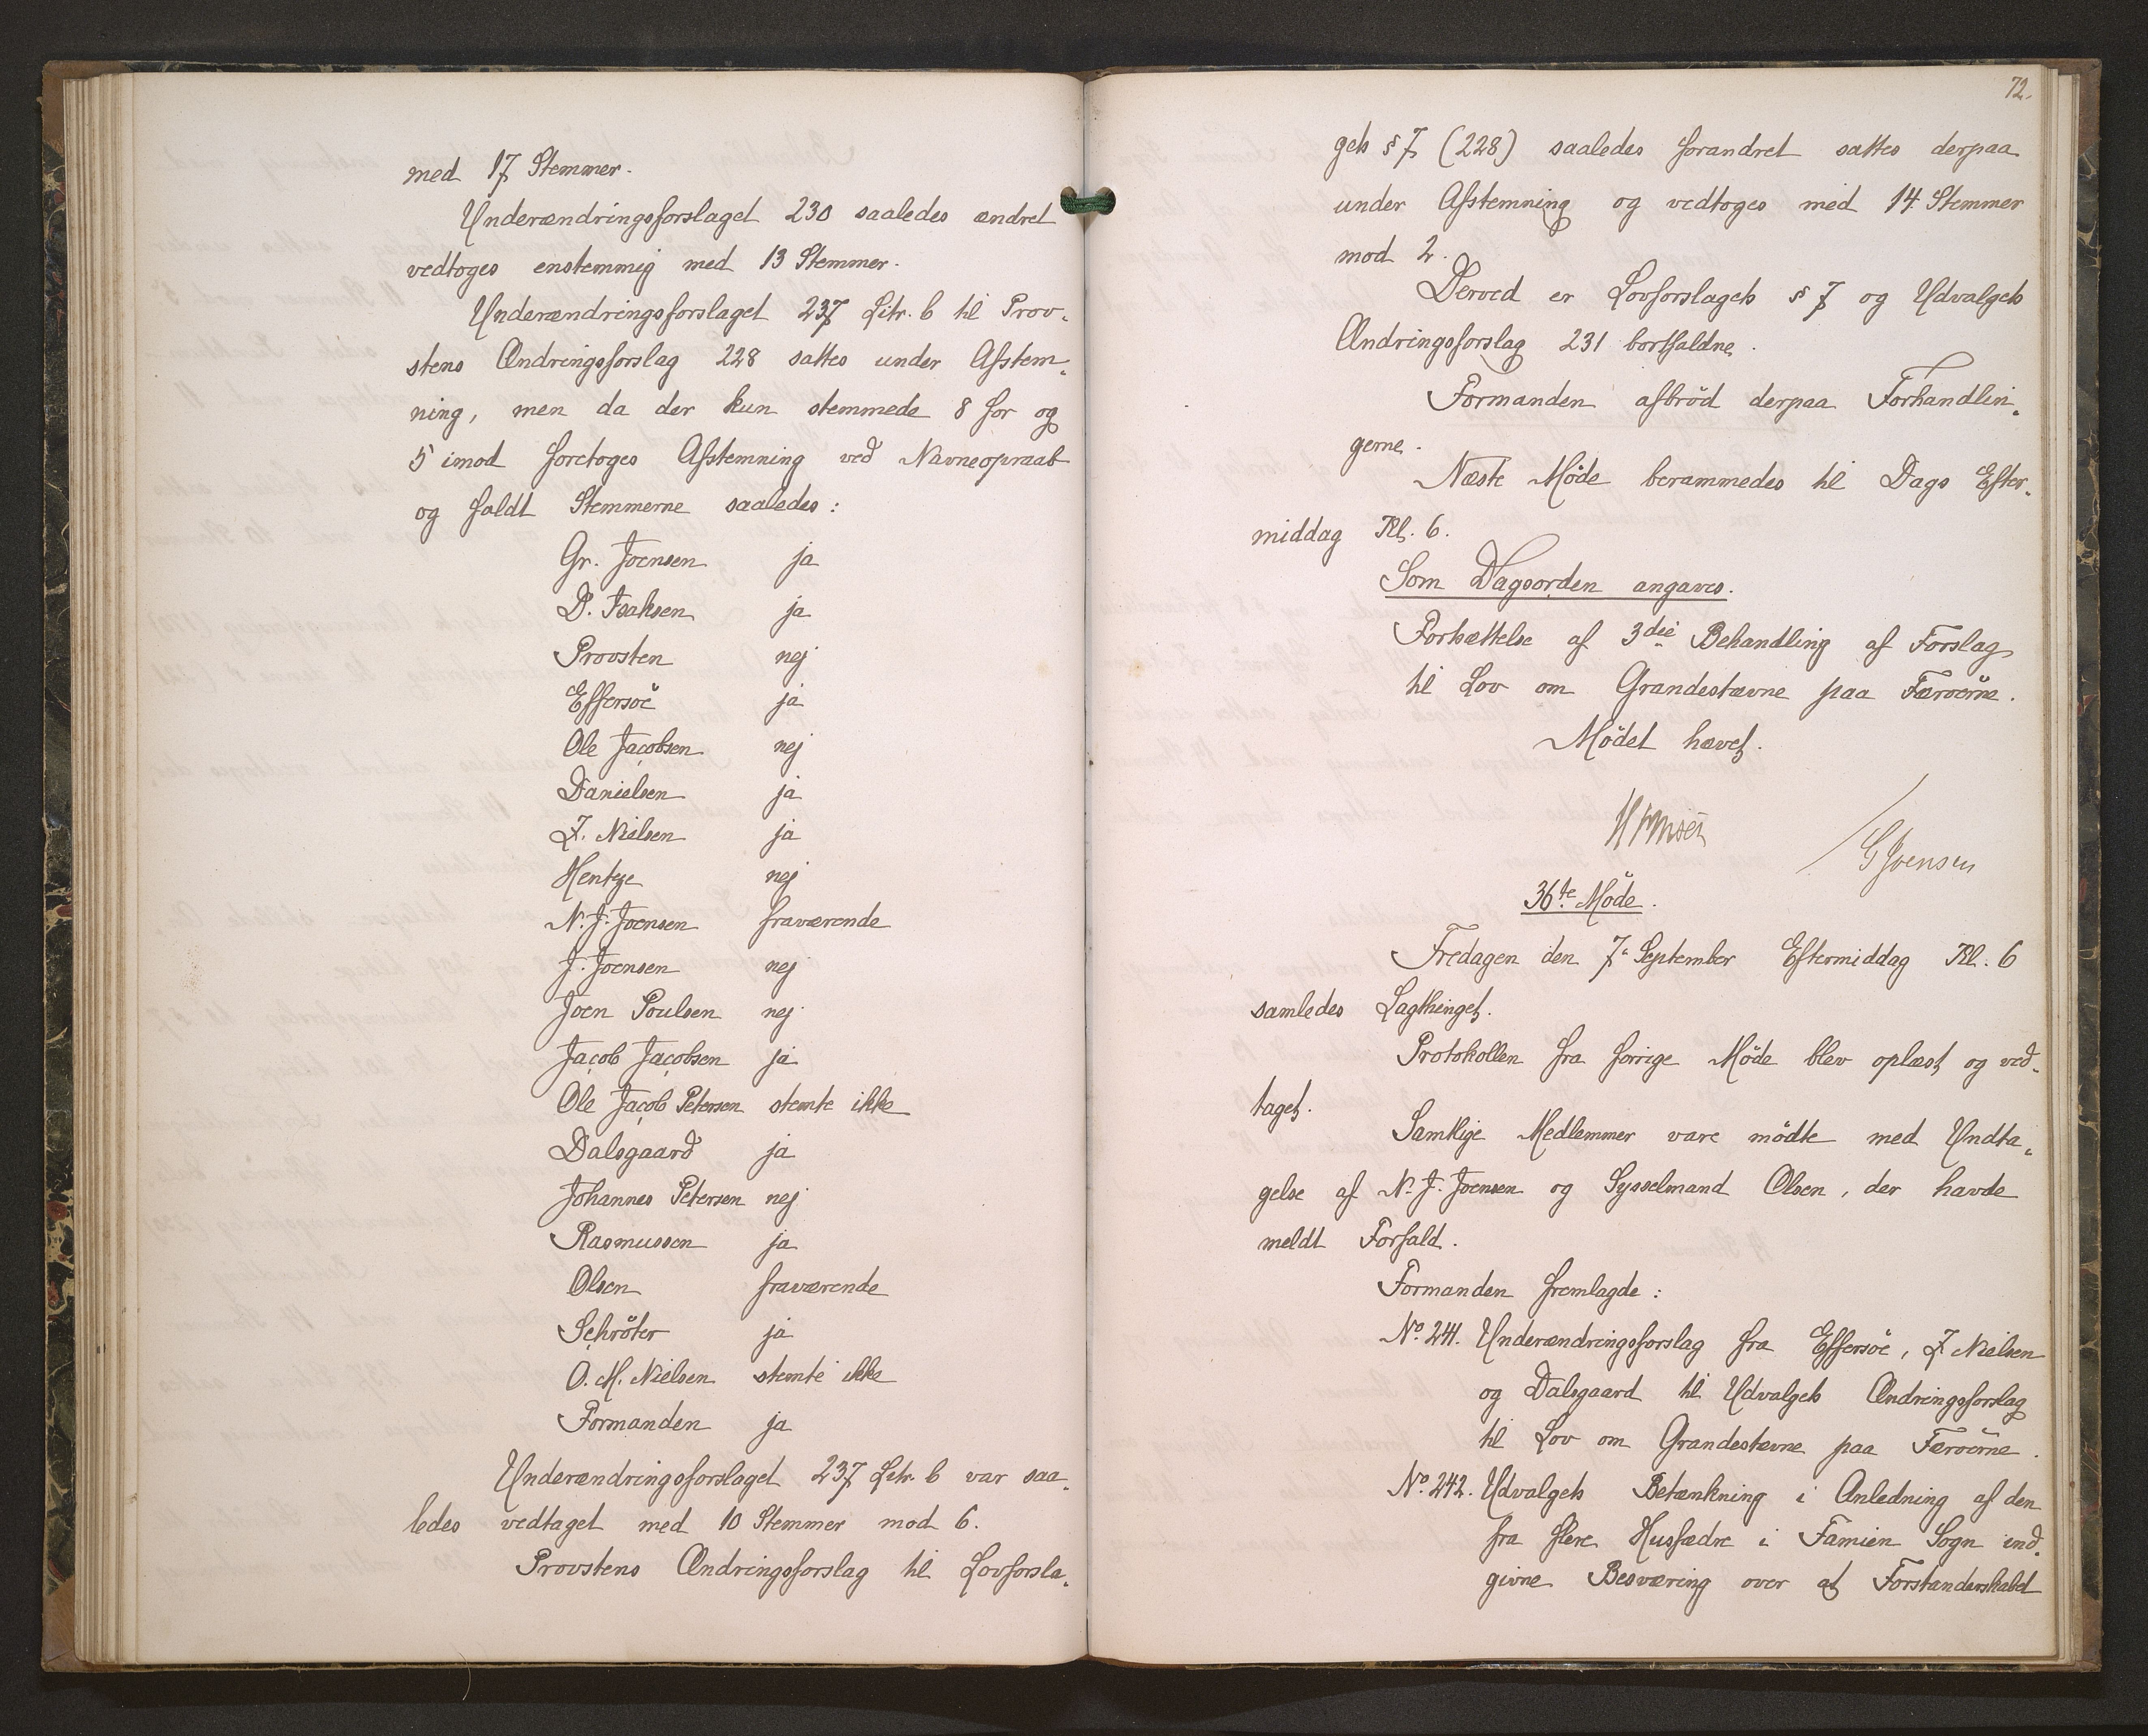 med 17 Stemmer.
Underændringsforslaget 230 saaledes ændret
vedtoges enstemmig med 13 Stemmer.
Underændringsforslaget 237 Litr. b til Prov-
stens Ændringsforslag 228 sattes under Afstem-
ning, men da der kun stemmede 8 for og
5 imod foretoges Afstemning ved Navneopraab
og faldt Stemmerne saaledes:
Gr. Joensen ja
D. Isaksen ja
Provsten nej
Effersöe ja
Ole Jacobsen nej
Danielsen ja
Z. Nielsen ja
Hentze nej
N. J. Joensen fraværende
J. Joensen nej
Joen Poulsen nej
Jacob Jacobsen ja
Ole Jacob Petersen stemte ikke
Dalsgaard ja
Johannes Petersen nej
Rasmussen ja
Olsen fraværende
Schröter ja
O. M. Nielsen stemte ikke
Formanden ja
Underændringsforslaget 237 Litr. b var saa-
ledes vedtaget med 10 Stemmer mod 6.
Provstens Ændringsforslag til Lovforsla-
72.
gets § 7 (228) saaledes forandret sattes derpaa
under Afstemning og vedtoges med 14 Stemmer
mod 2.
Derved er Lovforslagets § 7 og Udvalgets
Ændringsforslag 231 bortfaldne.
Formanden afbröd derpaa Forhandlin-
gerne.
Næste Möde berammedes til Dags Efter-
middag Kl. 6.
Som Dagsorden angaves.
Fortsættelse af 3die Behandling af Forslag
til Lov om Grandestævne paa Færöerne.
Mödet hævet.
GJoensen
36te Möde.
Fredagen den 7. September Eftermiddag Kl. 6
samledes Lagthinget.
Protokollen fra forrige Möde blev oplæst og ved-
taget.
Samtlige Medlemmer vare mödte med Undta-
gelse af N. J. Joensen og Sysselmand Olsen, der havde
meldt Forfald.
Formanden fremlagde:
No. 241. Underændringsforslag fra Effersöe, Z Nielsen
og Dalsgaard til Udvalgets Ændringsforslag
til Lov om Grandestævne paa Færöerne.
No. 242. Udvalgets Betænkning i Anledning af den
fra flere Husfædre i Famien Sogn ind-
givne Besværing over at Forstanderskabet